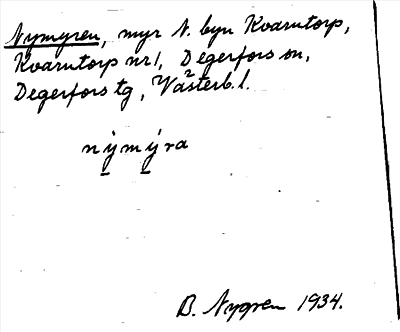 Nymyren, myr N. byn Kvarntorp,
Kvarntorp nr 1, Degerfors sn,
Degerfors tg, Västerb. l.
ny̱my̱ra
B. Nygren 1934.